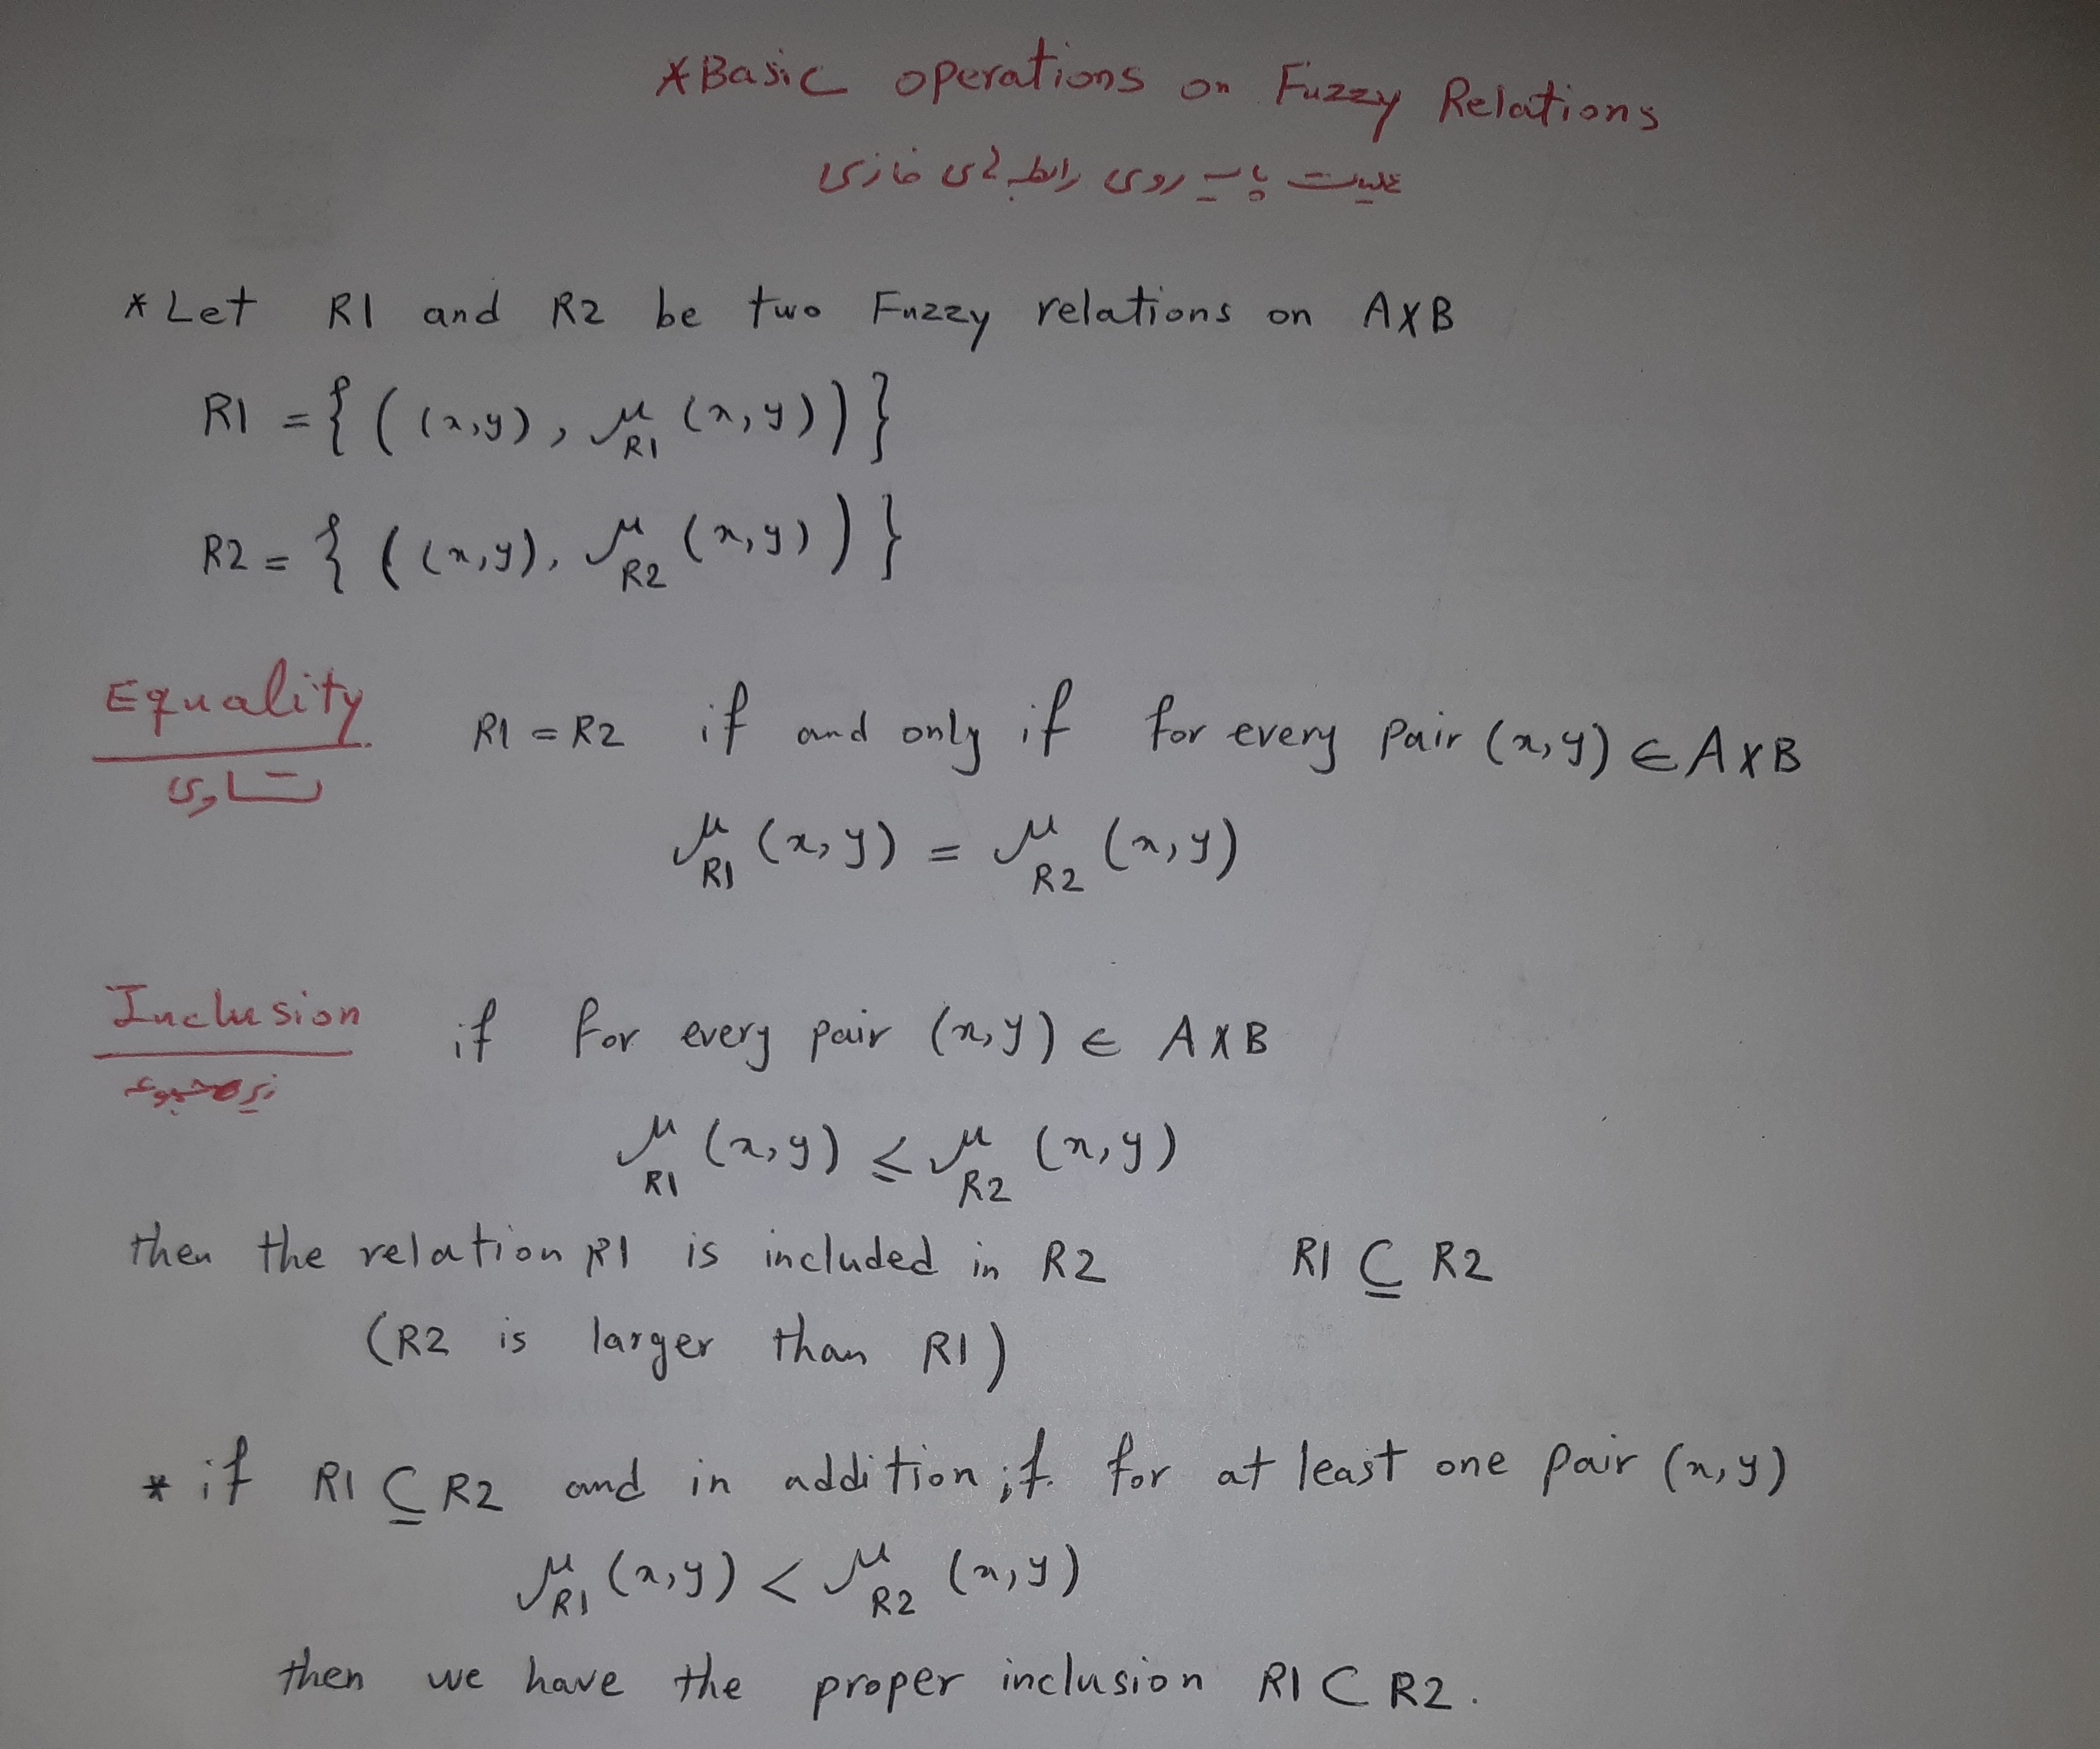 *Basic operations on Fuzzy Relations
عملیات پایه روی رابطه های فازی
* Let R1 and R2 be two Fuzzy relations on A×B
R1 = { ( (x,y), μ_R1 (x,y) ) }
R2 = { ( (x,y), μ_R2 (x,y) ) }
Equality R1 = R2 if and only if for every pair (x,y) ∈ A×B
تساوی
μ_R1 (x,y) = μ_R2 (x,y)
Inclusion if for every pair (x,y) ∈ A×B
زیرمجموعه
μ_R1 (x,y) ≤ μ_R2 (x,y)
then the relation R1 is included in R2 R1 ⊆ R2
(R2 is larger than R1)
* if R1 ⊆ R2 and in addition if for at least one pair (x,y)
μ_R1 (x,y) < μ_R2 (x,y)
then we have the proper inclusion R1 ⊂ R2.